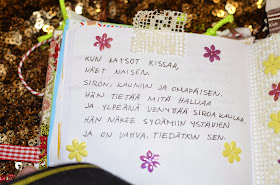 KUN KATSOT KISSAA,
NÄET NAISEN.
SIRON, KAUNIIN JA OMAPÄISEN.
HÄN TIETÄÄ MITÄ HALUAA
JA YLPEÄNÄ VENYTTÄÄ SIROA KAULAA.
HÄN NÄKEE SYDÄMIIN YSTÄVIEN
JA ON VAHVA, TIEDÄTKIN SEN.